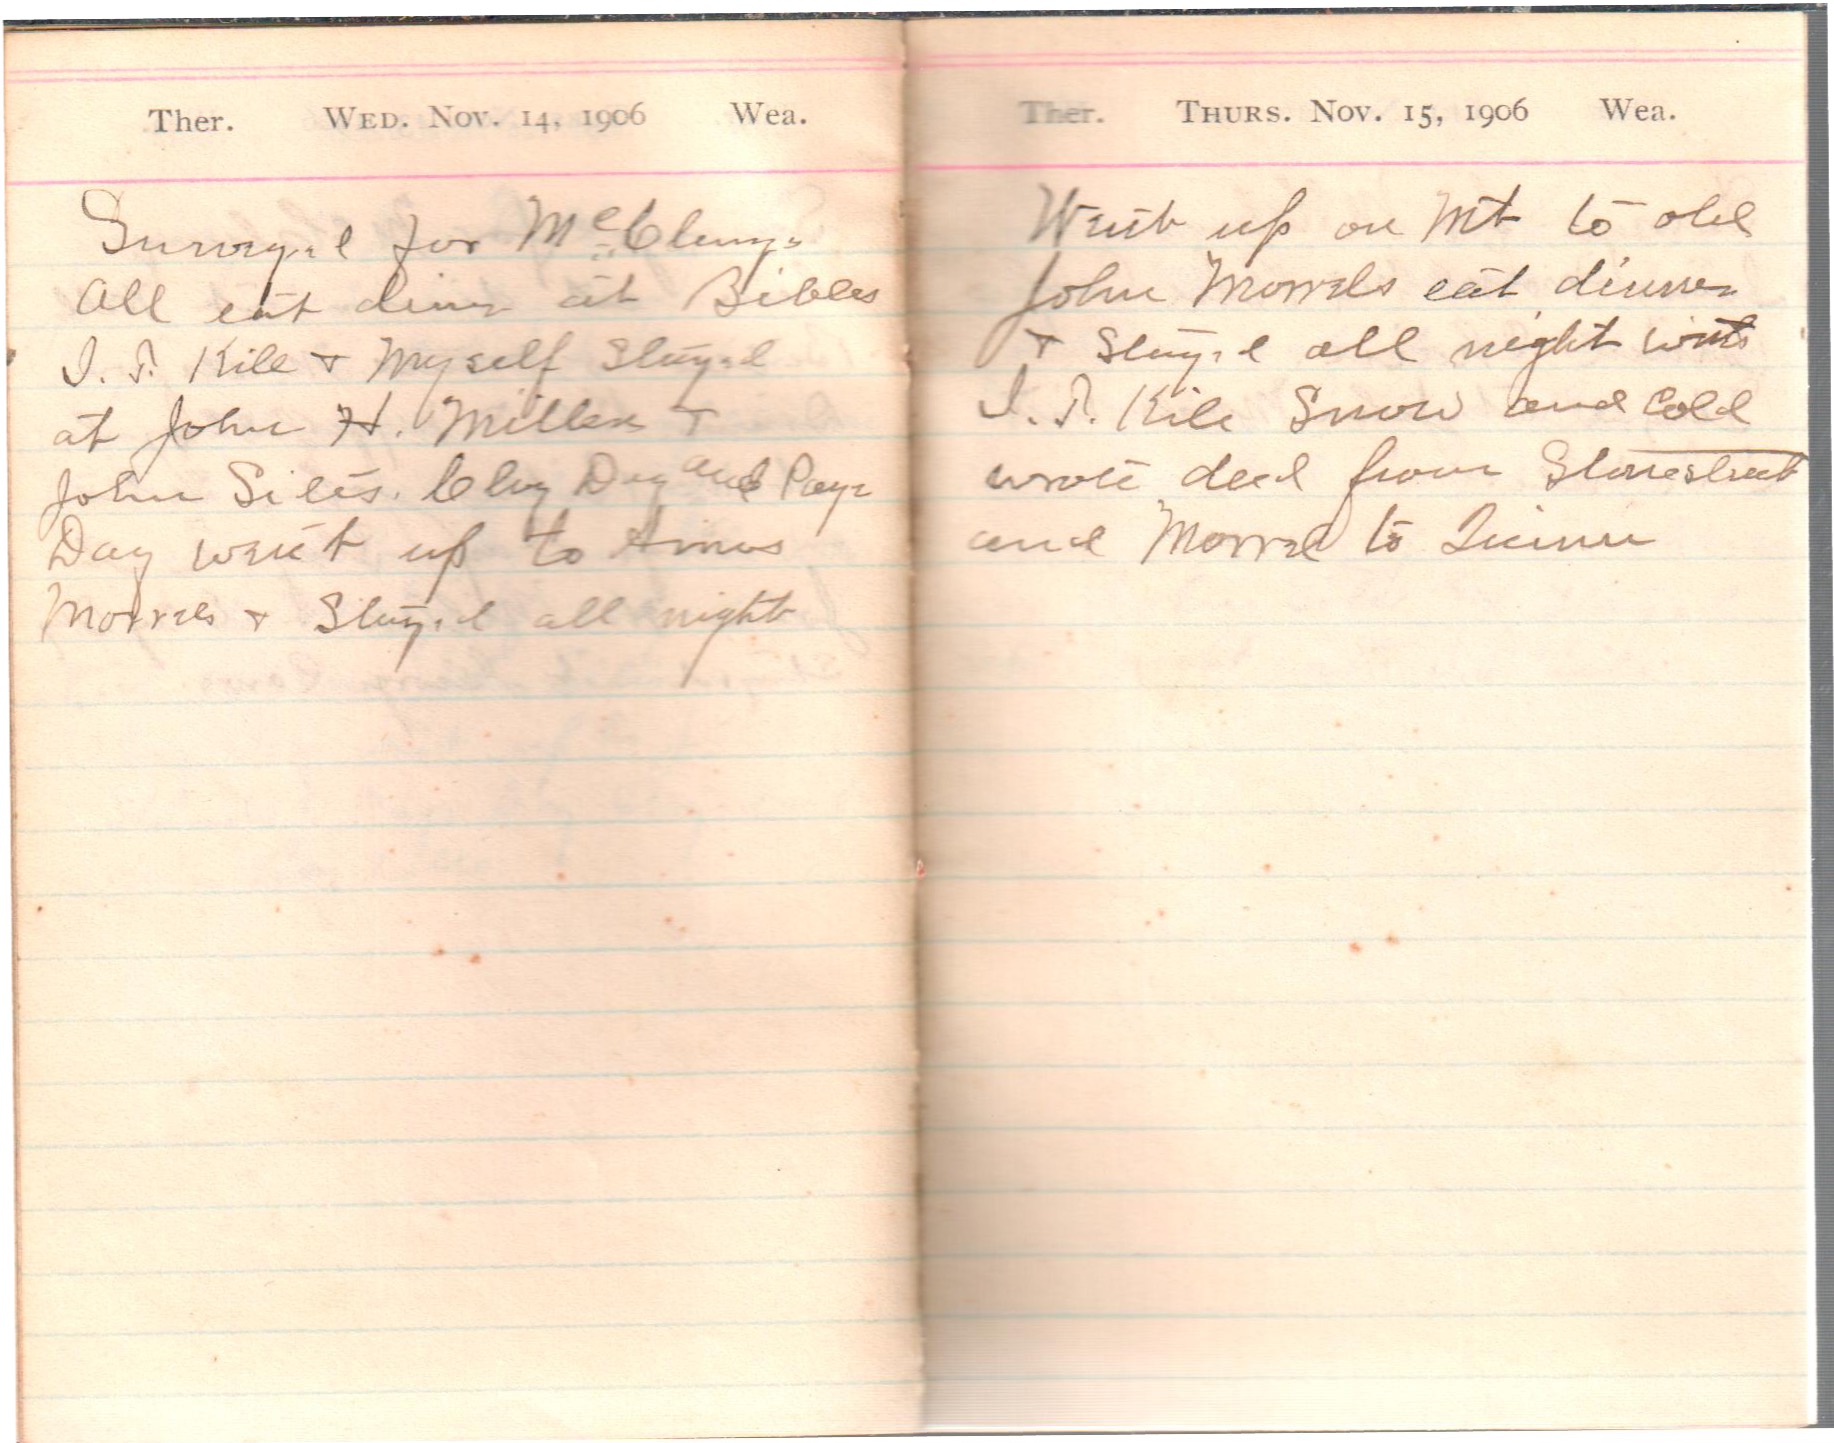 Ther. WED. NOV. 14, 1906 Wea.
Surveyed for McClungs
All eat diner at Bibbs
I. T. Kile + Myself Stayed
at John H. Millers +
John Siles. Clay Day and Page
Day went up to Amos
Morrels + Stayed all night
Ther. THURS. NOV. 15, 1906 Wea.
Went up on Mt to old
John Morrels eat dinner
+ Stayed all night with
I. T. Kile Snow and Cold
wrote deed from Stonestreet
and Morrel to